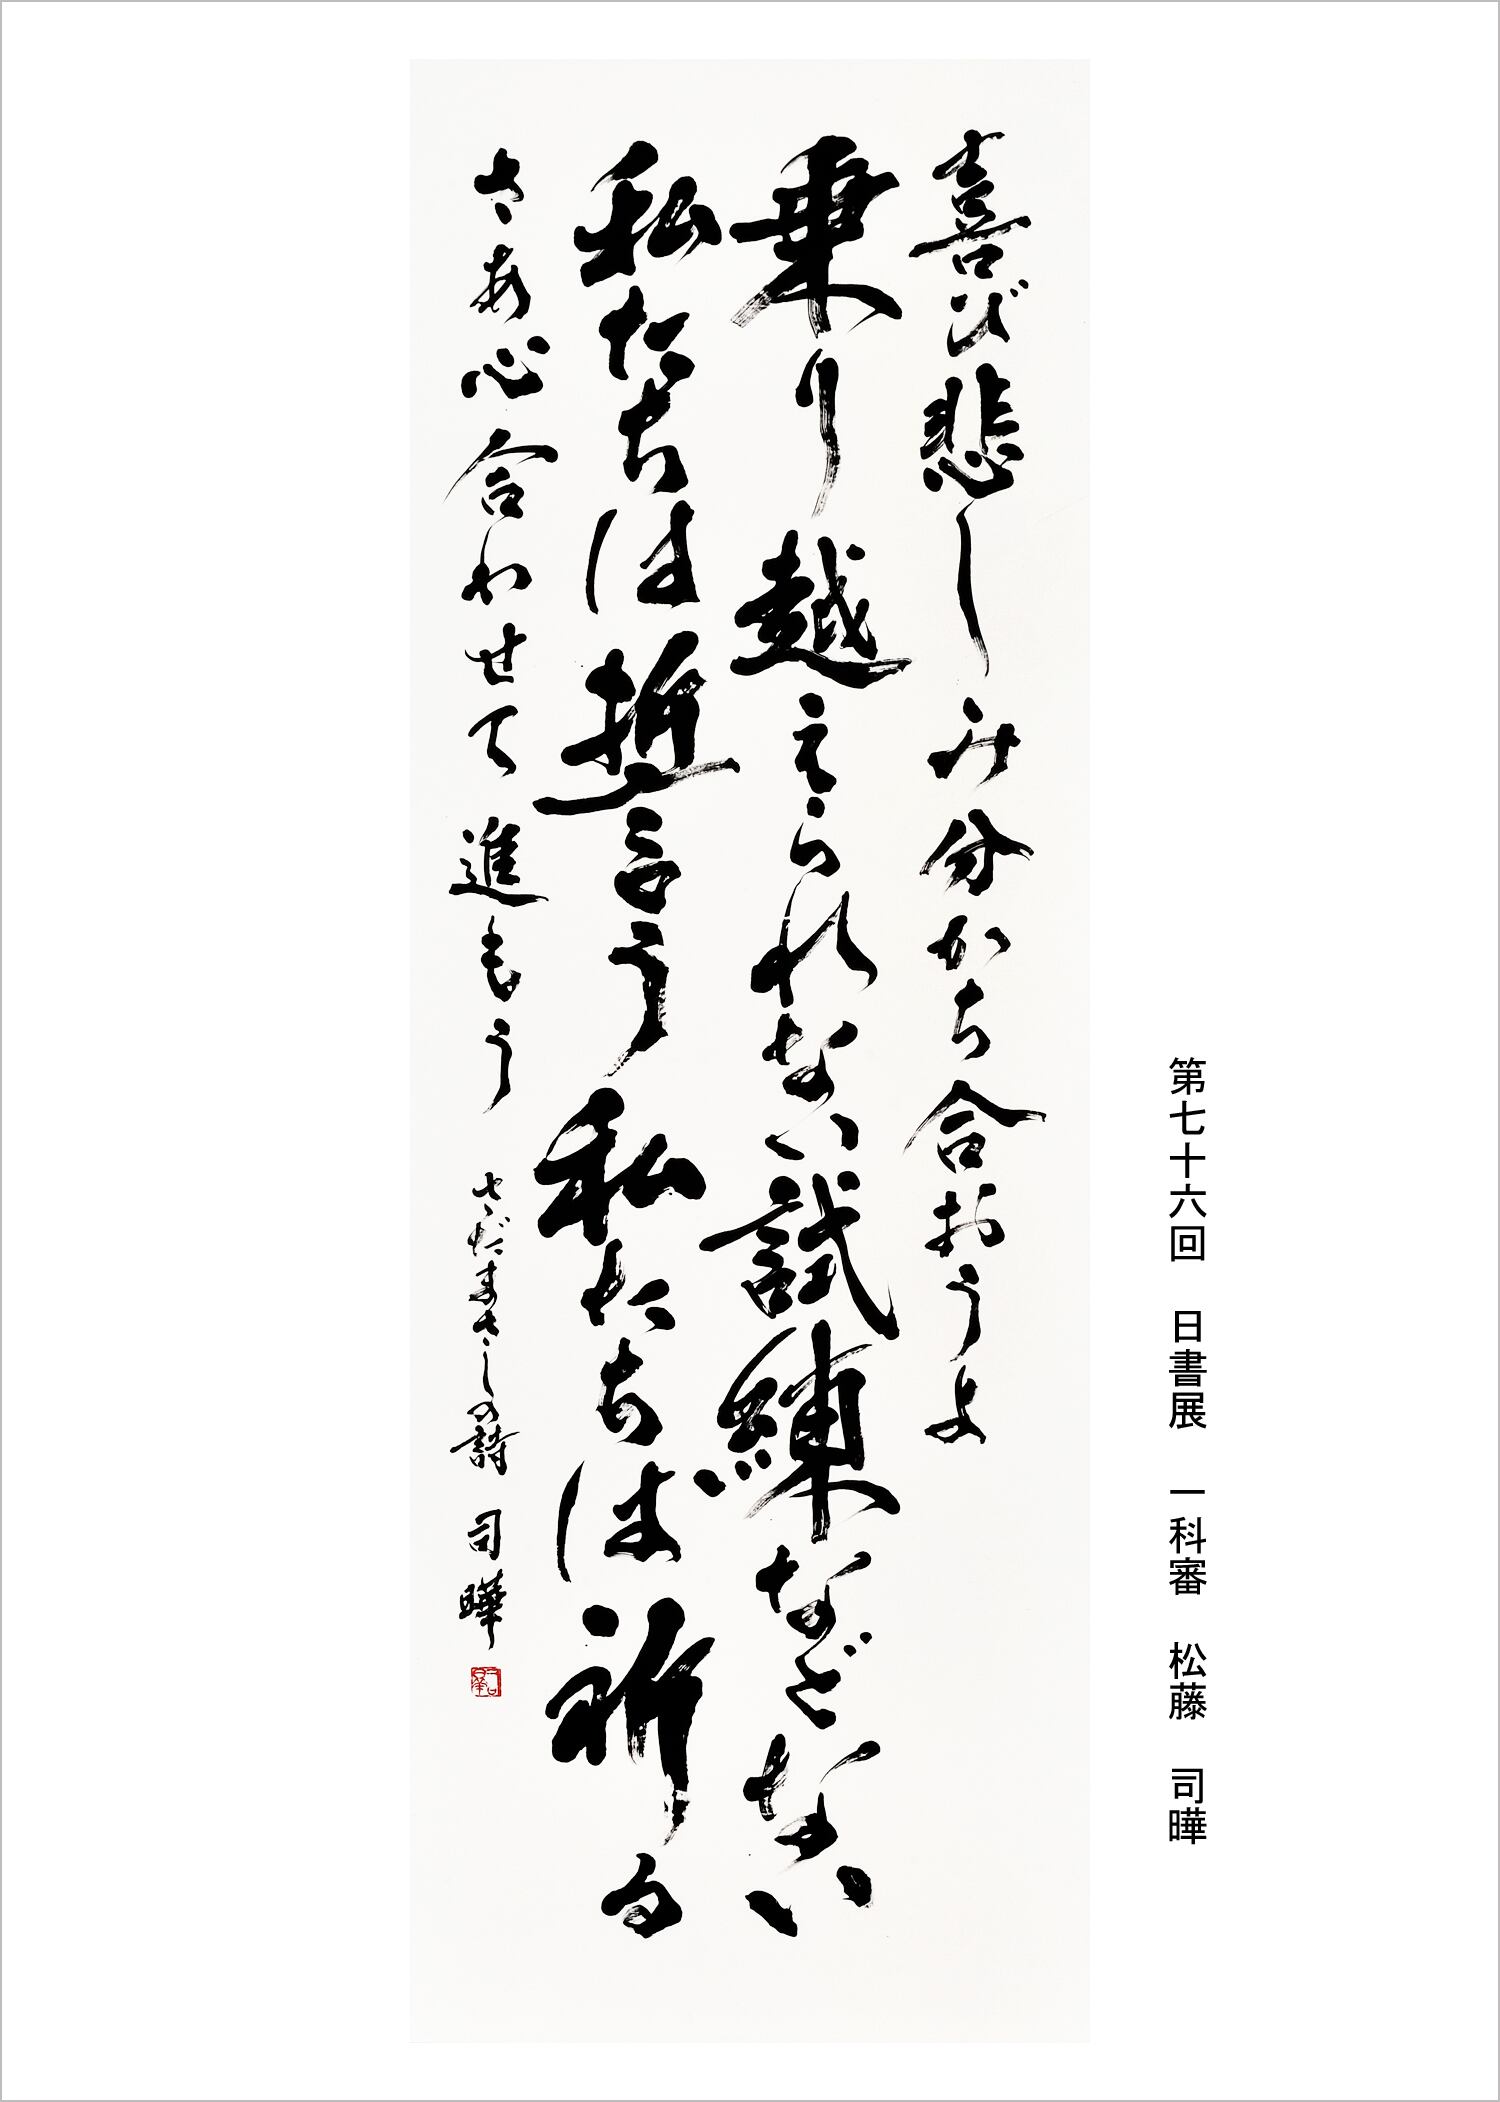 第七十六回　日書展　一科審　松藤　司曄
喜び悲しみ分かち合おうよ
乗り越えられない試練などない
私たちは誓う私たちは祈る
さあ心合わせて進もう　さだまさしの詩　司曄